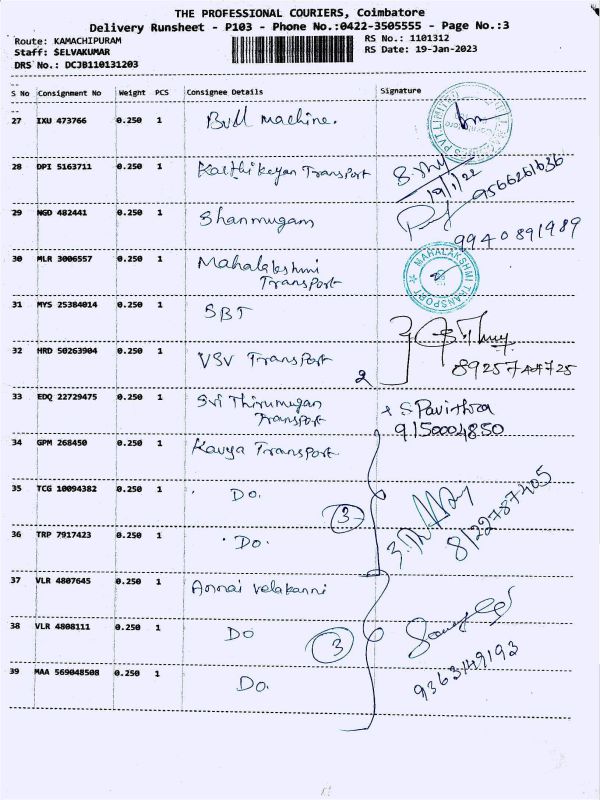 THE PROFESSIONAL COURIERS, Coimbatore
Delivery Runsheet - P103 - Phone No.:0422-3505555 - Page No.:3
Route: KAMACHIPURAM
RS No.: 1101312
Staff: SELVAKUMAR
RS Date: 19-Jan-2023
DRS No.: DCJB110131203
S No Consignment No Weight PCS Consignee Details Signature
27 IXU 473766 0.250 1 Bull machine.
28 DPI 5163711 0.250 1 Karthikeyan Transport
19/1/22 9566261636
29 NGD 482441 0.250 1 Shanmugam
9940891989
30 MLR 3006557 0.250 1 Mahalakshmi
Transport
MAHALAKSHMI TRANSPORT
31 MYS 25384014 0.250 1 SBT
32 HRD 50263904 0.250 1 VSV Transport
2
8925744725
33 EDQ 22729475 0.250 1 Sri Thirumugan
Transport
S Pavithra
9150004850
34 GPM 268450 0.250 1 Kavya Transport
35 TCG 10094382 0.250 1 Do.
3
8122787405
36 TRP 7917423 0.250 1 Do.
37 VLR 4807645 0.250 1 Annai Velakanni
38 VLR 4808111 0.250 1 Do
3
9363149193
39 MAA 569048508 0.250 1 Do.